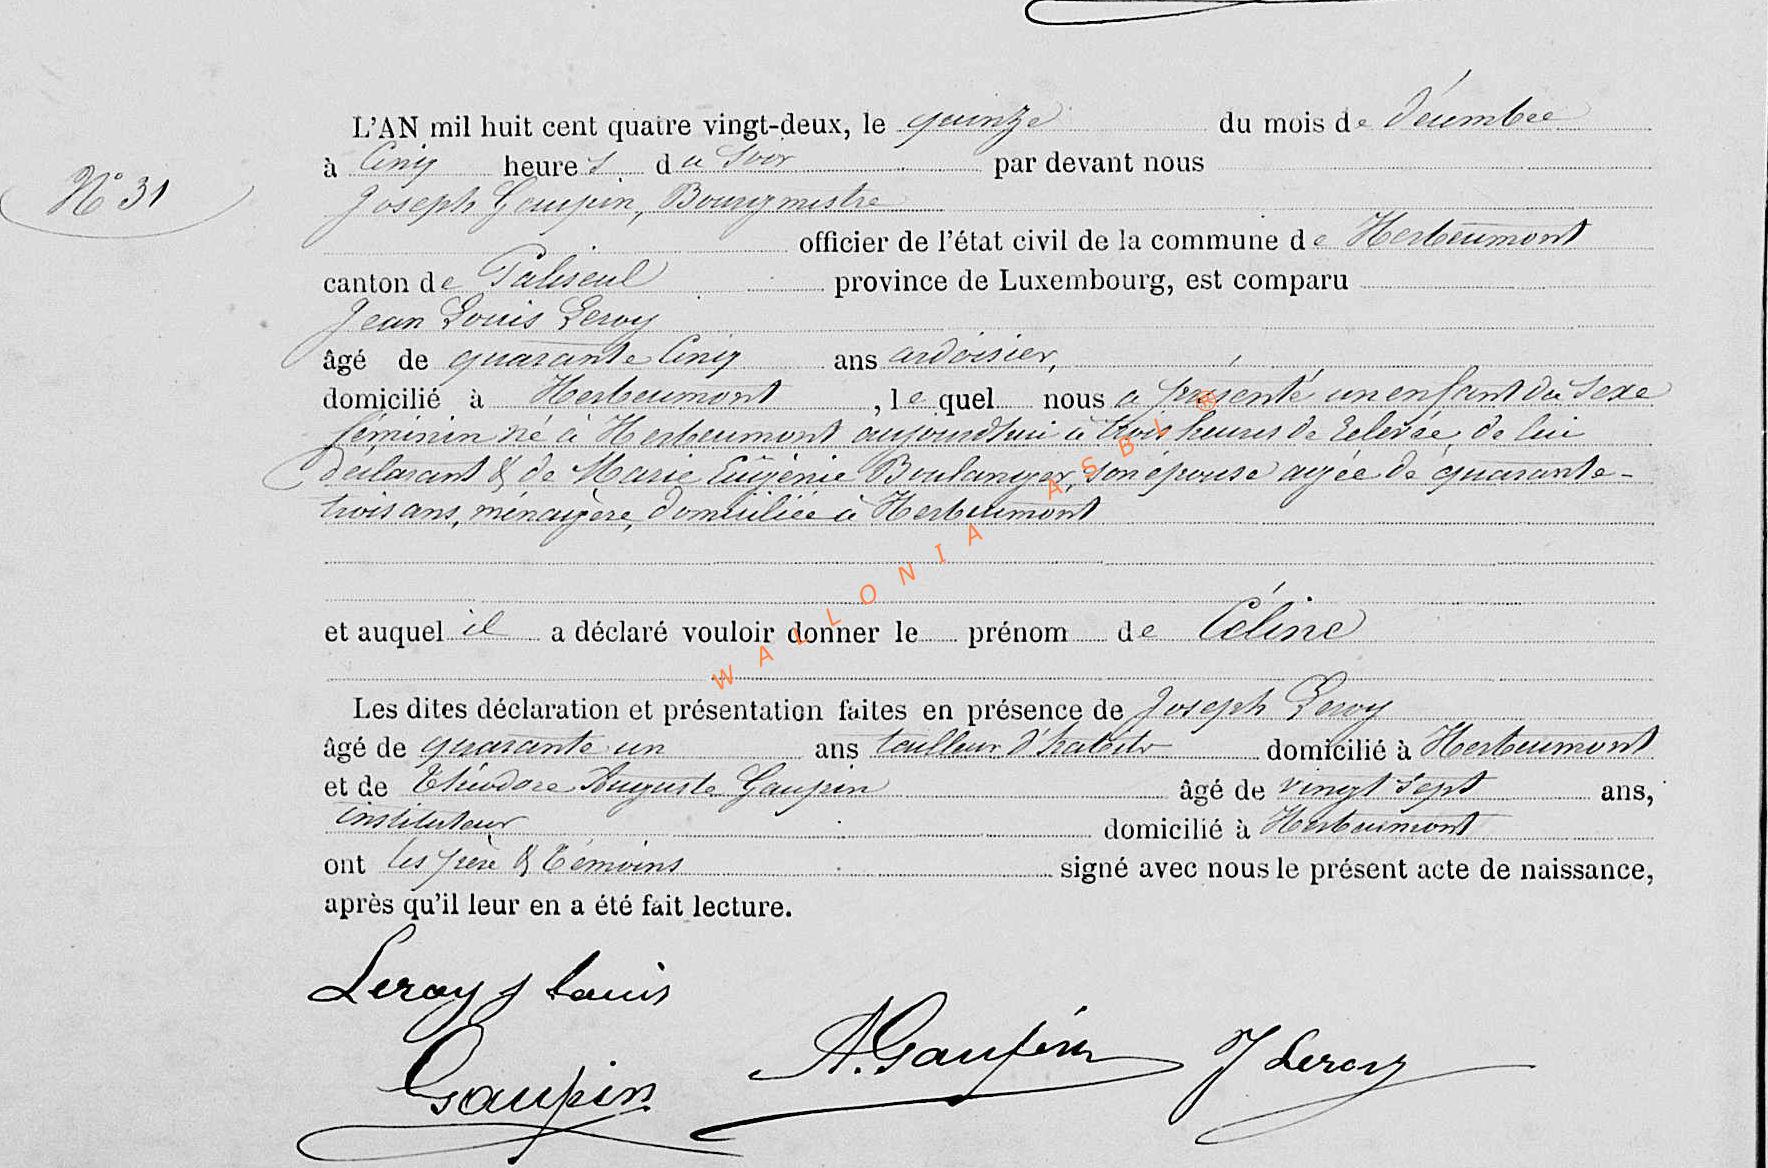 L'AN mil huit cent quatre vingt-deux, le quinze du mois de Décembre
à Cinq heures du Soir par devant nous
N° 31
Joseph Gaupin, Bourgmestre
officier de l'état civil de la commune de Herbeumont
canton de Paliseul province de Luxembourg, est comparu
Jean Louis Leroy
âgé de quarante Cinq ans ardoisier,
domicilié à Herbeumont, lequel nous a présenté un enfant du Sexe
féminin né à Herbeumont aujourd'hui à trois heures de relevée, de lui
déclarant & de Marie Eugénie Boulanger, son épouse agée de quarante-
trois ans, ménagère, domiciliée à Herbeumont
et auquel il a déclaré vouloir donner le prénom de Céline
Les dites déclaration et présentation faites en présence de Joseph Leroy
âgé de quarante un ans tailleur d'habits domicilié à Herbeumont
et de Théodore Auguste Gaupin âgé de vingt sept ans,
instituteur domicilié à Herbeumont
ont les père & témoins signé avec nous le présent acte de naissance,
après qu'il leur en a été fait lecture.
Leroy J Louis
Gaupin A. Gaupin J Leroy
WALLONIA ASBL ®